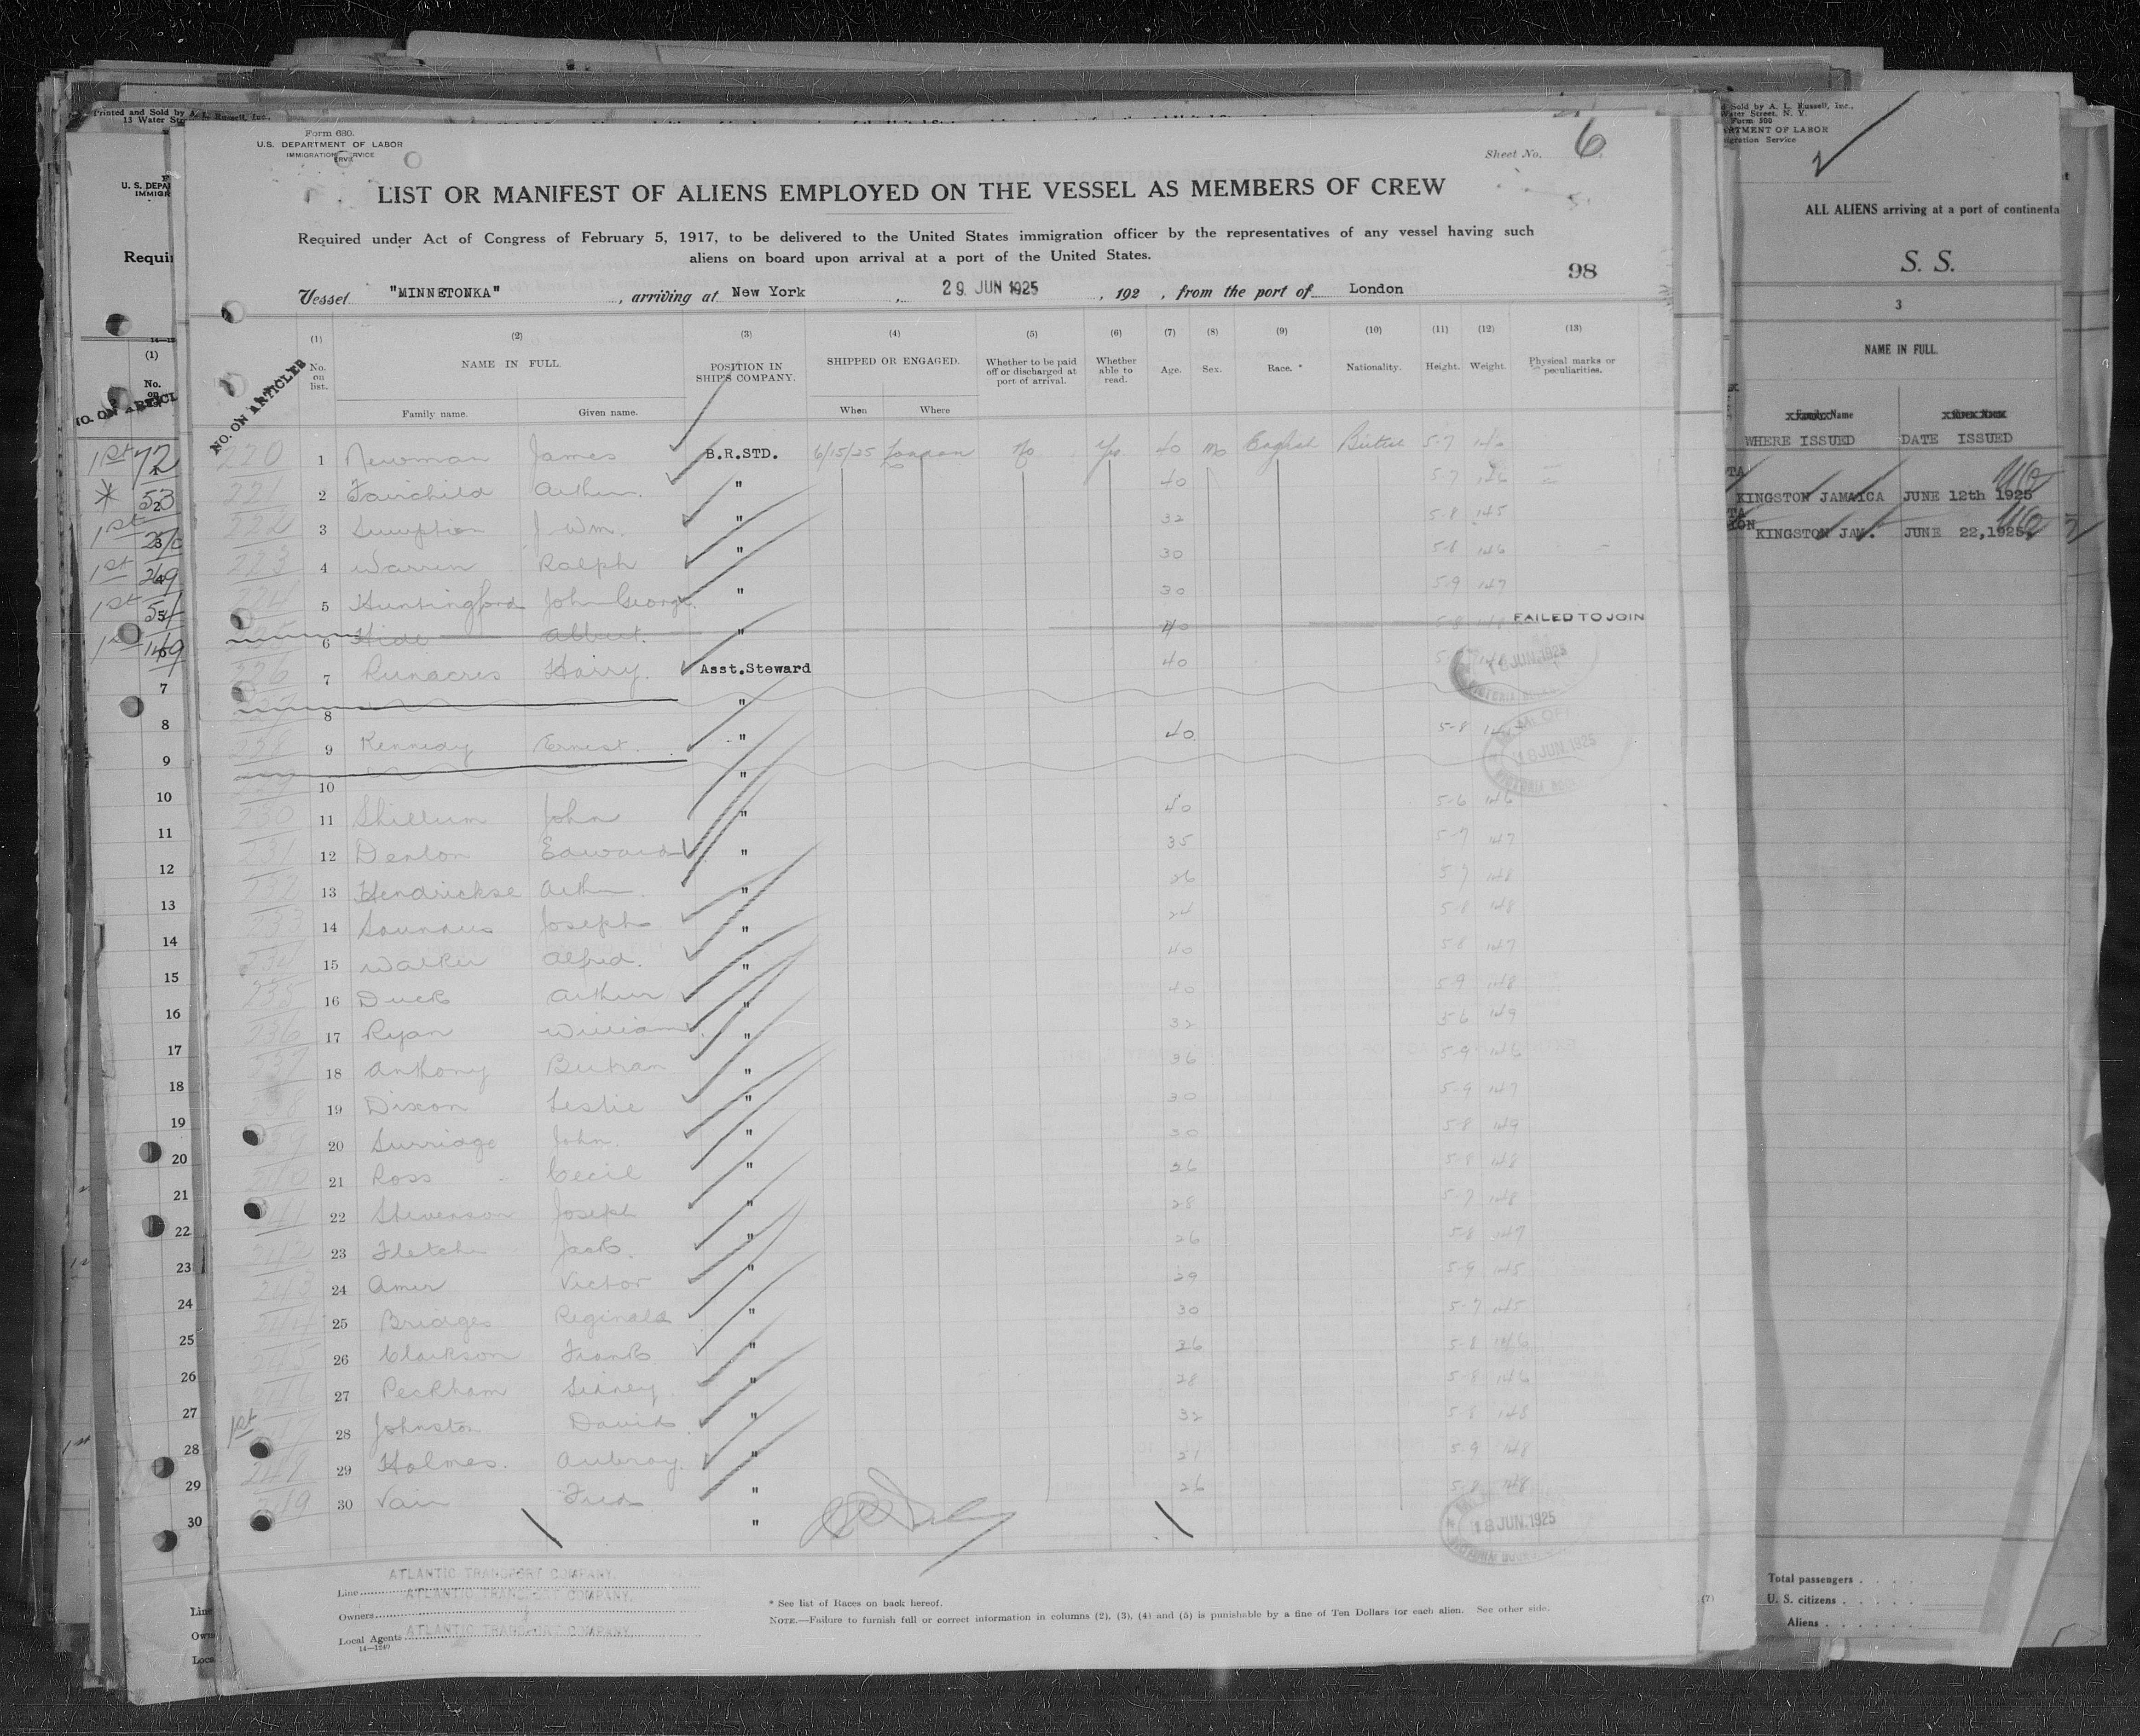 Form 680.
U. S. DEPARTMENT OF LABOR
IMMIGRATION SERVICE
Sheet No. 6
LIST OR MANIFEST OF ALIENS EMPLOYED ON THE VESSEL AS MEMBERS OF CREW
Required under Act of Congress of February 5, 1917, to be delivered to the United States immigration officer by the representatives of any vessel having such
aliens on board upon arrival at a port of the United States.
98
Vessel "MINNETONKA", arriving at New York, 29 JUN 1925, 192 , from the port of London
NO. ON ARTICLES
(1) (2) (3) (4) (5) (6) (7) (8) (9) (10) (11) (12) (13)
No. on list. NAME IN FULL. POSITION IN SHIP'S COMPANY. SHIPPED OR ENGAGED. Whether to be paid off or discharged at port of arrival. Whether able to read. Age. Sex. Race. * Nationality. Height. Weight. Physical marks or peculiarities.
Family name. Given name. When Where
220 1 Newman James B.R.STD. 6/15/25 London No Yes 40 m English British 5-7 146
221 2 Fairchild Arthur. " 40 5-7 146
222 3 Sumption J Wm. " 32 5-8 145
223 4 Warren Ralph " 30 5-8 146
224 5 Huntingford John George " 30 5-9 147
6 Hide Albert. " 40 5-8 FAILED TO JOIN
226 7 Runacres Harry. Asst.Steward 40
18 JUN.1925
8 "
228 9 Kennedy Ernest. " 40 5-8
18 JUN.1925
10 "
230 11 Shillum John " 40 5-6 146
231 12 Denton Edward " 35 5-7 147
232 13 Hendrickse Arthur " 26 5-7 148
233 14 Saunders Joseph " 24 5-8 148
234 15 Walker Alfred. " 40 5-8 147
235 16 Duck Arthur " 40 5-9 148
236 17 Ryan William " 32 5-6 149
237 18 Anthony Bertram " 36 5-9 146
238 19 Dixon Leslie " 30 5-9 147
239 20 Surridge John. " 30 5-8 149
240 21 Ross Cecil " 26 5-8 148
241 22 Stevenson Joseph " 28 5-7 148
242 23 Fletcher Jack. " 26 5-8 147
243 24 Amer Victor " 29 5-9 145
244 25 Bridges Reginald " 30 5-7 145
245 26 Clarkson Frank " 26 5-8 146
246 27 Peckham Sidney. " 28 5-8 146
1st 247 28 Johnston David " 32 5-8 148
248 29 Holmes. Aubray. " 21 5-9 148
249 30 Vair Fred " 26 5-8 148
"
18 JUN.1925
Line ATLANTIC TRANSPORT COMPANY.
Owners ATLANTIC TRANSPORT COMPANY.
Local Agents ATLANTIC TRANSPORT COMPANY.
14—1240
* See list of Races on back hereof.
NOTE.—Failure to furnish full or correct information in columns (2), (3), (4) and (5) is punishable by a fine of Ten Dollars for each alien. See other side.
(7)
Printed and Sold by A. L. Russell, Inc.,
13 Water Str
U. S. DEPA
IMMIGR
Requi
(1)
No.
1st 72
* 53
1st
1st 269
1st 54
1st 169
7
8
9
10
11
12
13
14
15
16
17
18
19
20
21
22
23
24
25
26
27
28
29
30
Line
Own
Loca
Sold by A. L. Russell, Inc.,
Water Street, N. Y.
Form 500
RTMENT OF LABOR
migration Service
ALL ALIENS arriving at a port of continenta
S. S.
3
NAME IN FULL.
Family Name
WHERE ISSUED DATE ISSUED
KINGSTON JAMAICA JUNE 12th 1925
KINGSTON JAM. JUNE 22,1925.
Total passengers . . . .
U. S. citizens . . . . .
Aliens . . . . . .